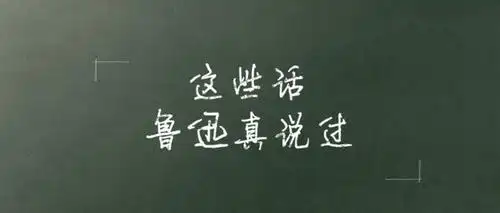 这些话
鲁迅真说过